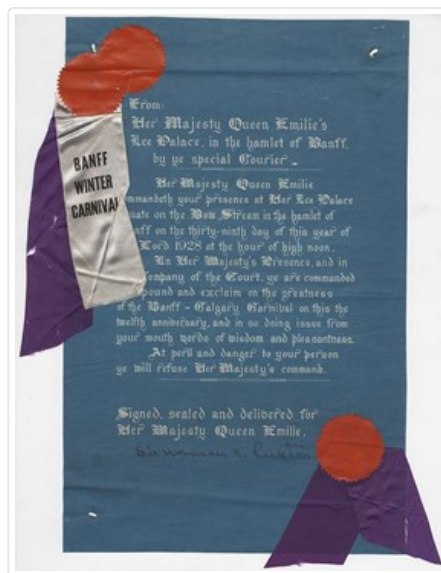 BANFF
WINTER
CARNIVAL
From:
Her Majesty Queen Emilie's
Ice Palace, in the hamlet of Banff,
by ye special Courier –
Her Majesty Queen Emilie
ommandeth your presence at Her Ice Palace
uate on the Bow Stream in the hamlet of
anff on the thirty-ninth day of this year of
Lord 1928 at the hour of high noon.
In Her Majesty's Presence, and in
ompany of the Court, ye are commanded
pound and exclaim on the greatness
of the Banff – Calgary Carnival on this the
twelfth anniversary, and in so doing issue from
your mouth words of wisdom and pleasantness.
At peril and danger to your person
ye will refuse Her Majesty's command.
Signed, sealed and delivered for
Her Majesty Queen Emilie.